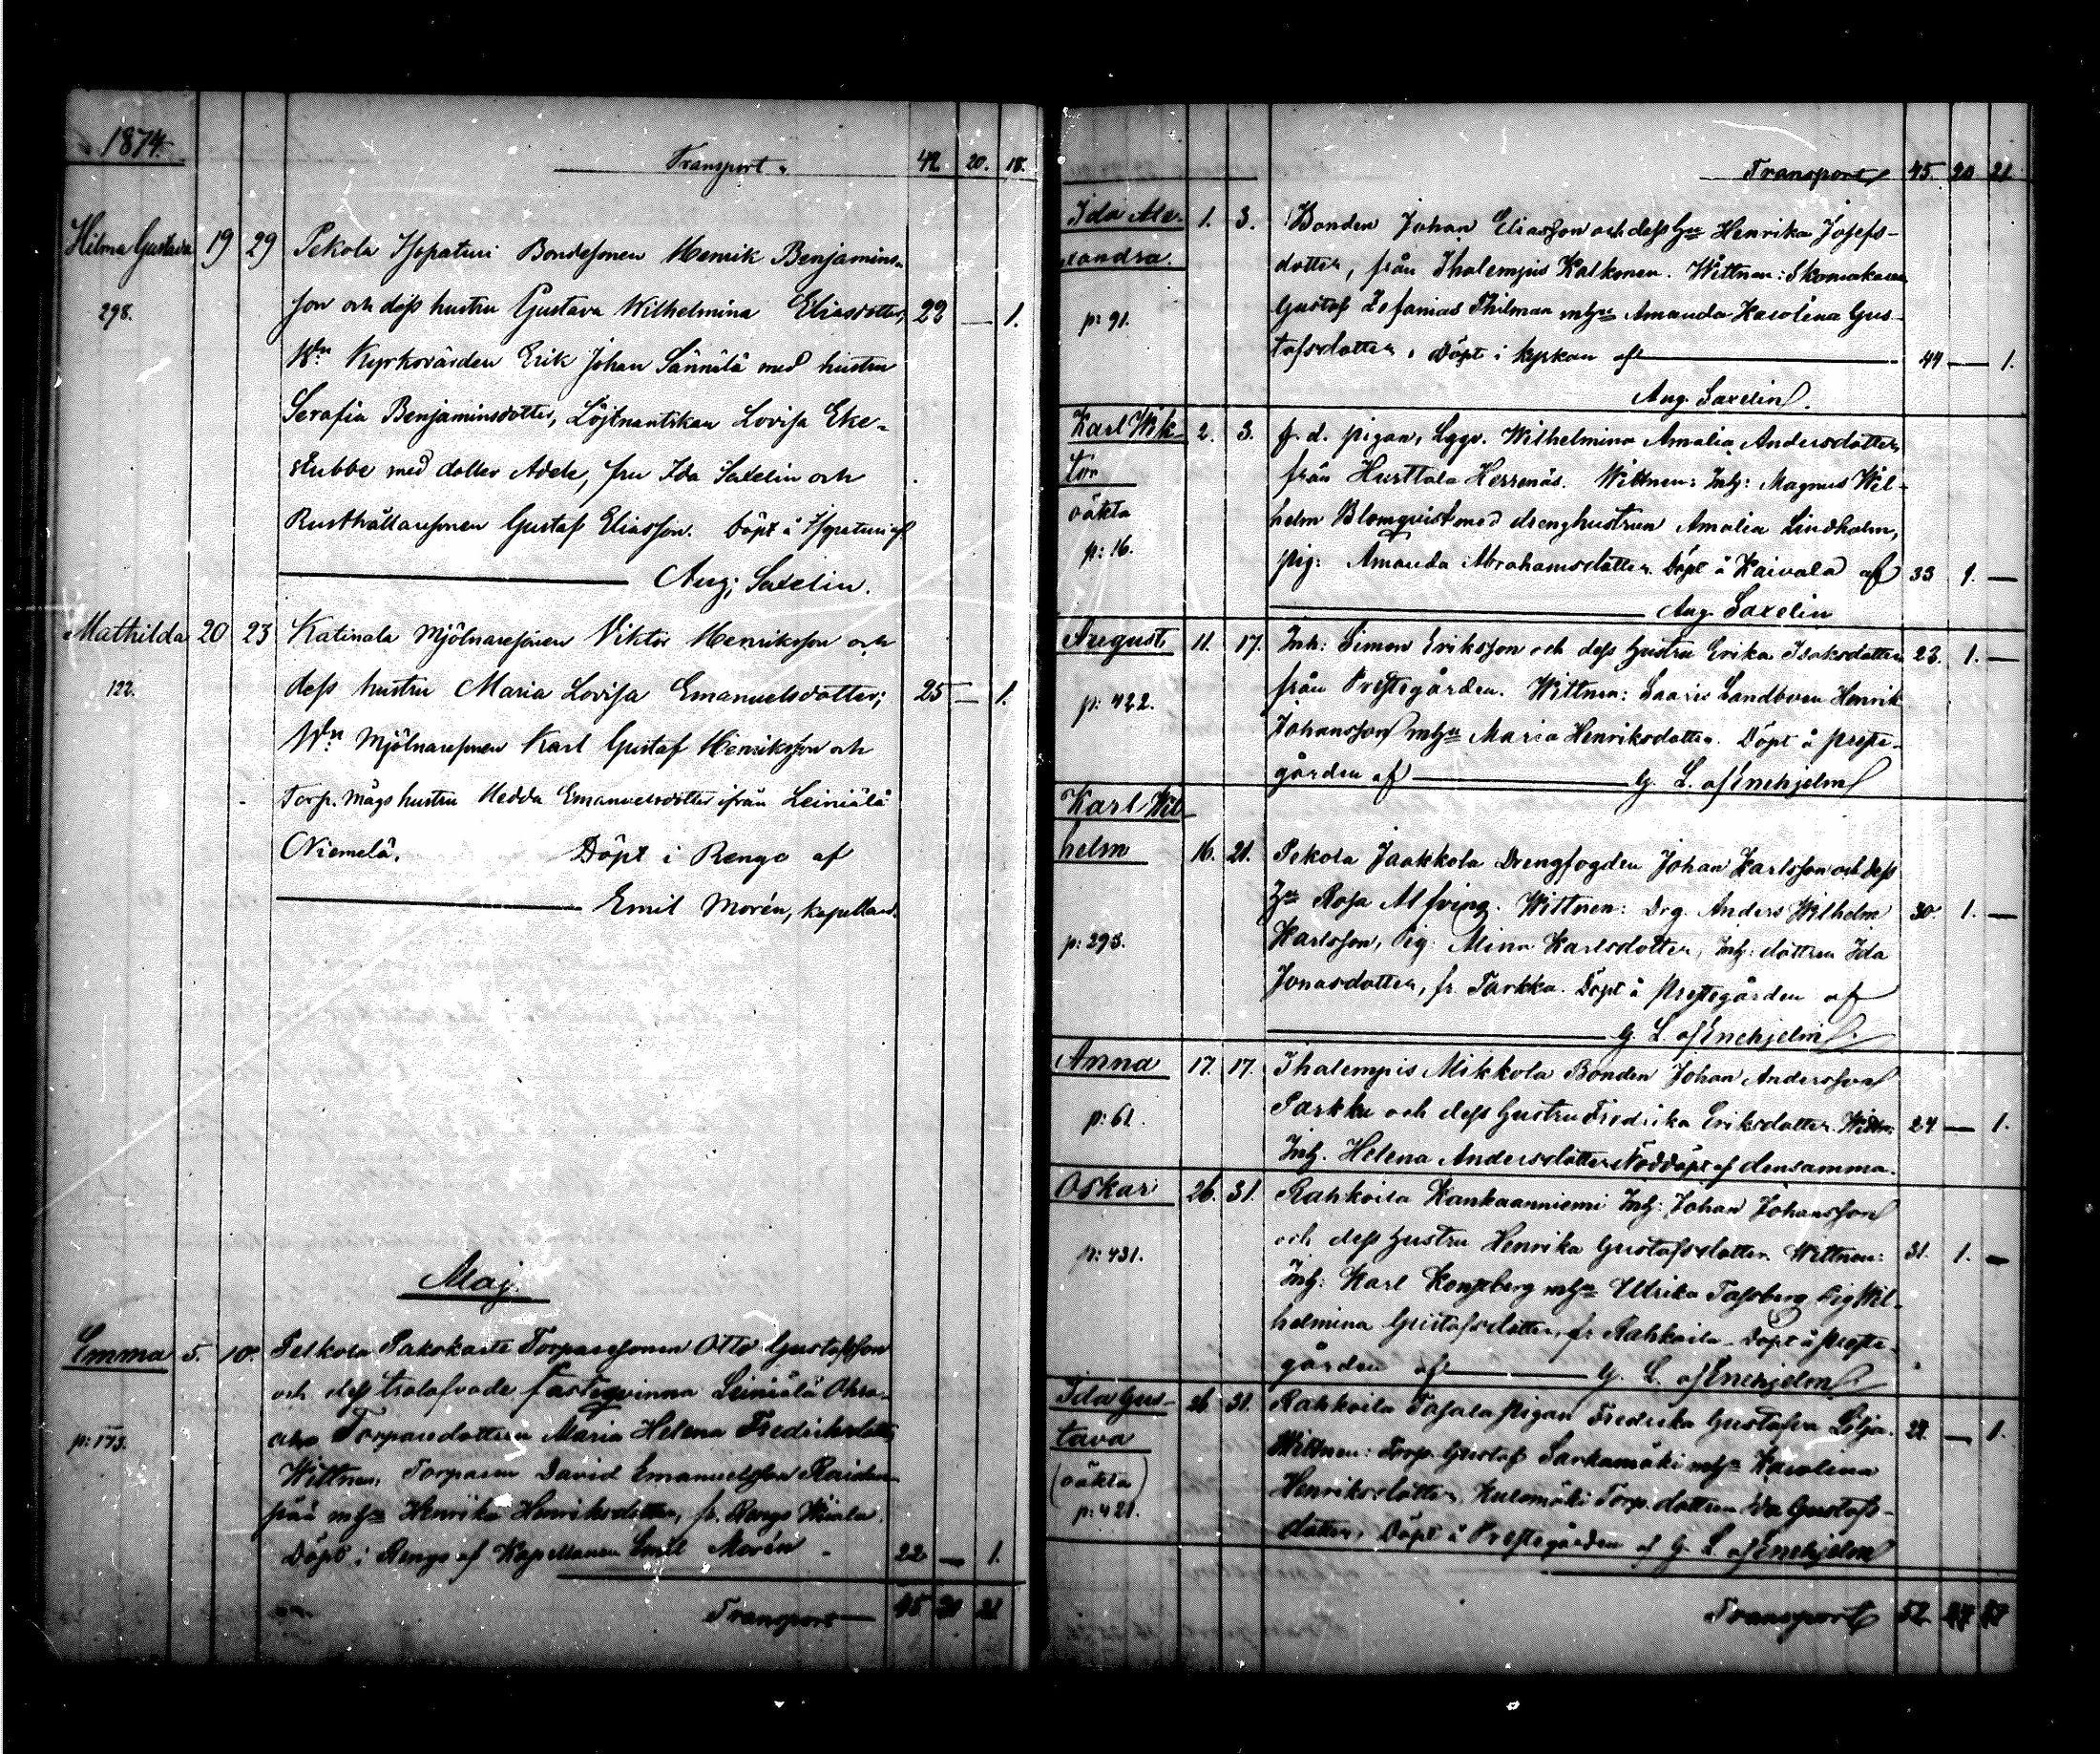 1874.
Transport. 42. 20. 18.
Hilma Gustava 19 29 Pekola Isopaturi Bondesonen Henrik Benjamins-
298. son och dess hustru Gustava Wilhelmina Eliasdotter, 22 — 1.
Wn Kyrkovärden Erik Johan Sännilä med hustru
Serafia Benjaminsdotter, Löjtnantskan Lovisa Eke-
stubbe med dotter Adele, fru Ida Saxelin och
Rusthållaresonen Gustaf Eliasson. Döpt å Isopaturi af
Aug; Saxelin.
Mathilda 20 23 Katinala Mjölnaresonen Viktor Henriksson och
122. dess hustru Maria Lovisa Emanuelsdotter; 25 — 1.
Wn Mjölnaresonen Karl Gustaf Henriksson och
Torp. mågs hustru Hedda Emanuelsdotter ifrån Leiniälä
Niemelä. Döpt i Rengo af
Emil Morén, kapellan.
Maj.
Emma 5. 10. Pelkola Torparesonen Otto Gustafsson
och dess trolofvade fästeqvinna Leiniälä
p: 173. Torparedottern Maria Helena Fredriksdotter,
Wittnen: Torparen David Emanuelsson
mhu Henrika Henriksdotter, fr. Rengo
Döpt i Rengo af Kapellanen Emil Morén 22 — 1.
Transport 45 20 21
Transport 45. 20 21
Ida Ale- 1. 3. Bonden Johan Eliasson och dess hu Henrika Josefs-
xandra. dotter, från Ihalempis Kalkonen. Wittnen: Skomakaren
p: 91. Gustaf Zefanias Thilman mhu Amanda Karolina Gus-
tafsdotter. Döpt i kyrkan af 44 — 1.
Aug. Saxelin.
Karl Wik- 2. 3. f. d. pigan, Wilhelmina Amalia Andersdotter
tor från Hurttala Herrenäs. Wittnen: Inh: Magnus Wil-
oäkta helm Blomqvist med drenghustrun Amalia Lindholm,
p: 16. pig: Amanda Abrahamsdotter. Döpt å Kaivala af 33 1. —
Aug. Saxelin
August 11. 17. Inh: Simon Eriksson och dess hustru Erika Isaksdotter 23. 1. —
p: 422. från Prestegården. Wittnen: Saaris Landbonn Henrik
Johansson mhu Maria Henriksdotter. Döpt å preste-
gården af G. L. af Enehjelm
Karl Wil-
helm 16. 21. Pekola Jaakkola Drengfogden Johan Karlsson och dess
hu Rosa Alfving. Wittnen: Drg. Anders Wilhelm 30. 1. —
p: 293. Karlsson, Pig: Mina Karlsdotter, Inh: dottren Ida
Jonasdotter, fr. Parkka. Döpt å prestegården af
G. L. af Enehjelm.
Anna 17. 17. Ihalempis Mikkola Bonden Johan Andersson
p: 61. Parkku och dess hustru Fredrika Eriksdotter. Wittn: 24 — 1.
Inh. Helena Andersdotter. Nöddöpt af densamma.
Oskar 26. 31. Rahkoila Kankaanniemi Inh: Johan Johansson
p: 431. och dess hustru Henrika Gustafsdotter. Wittnen: 31. 1. —
Inh: Karl Kongsberg mhu Ulrika Pig Wil-
helmina Gustafsdotter, fr Rahkoila. Döpt å preste-
gården af G. L. af Enehjelm.
Ida Gus- 26 31. Rahkoila Pigan Fredrika Gustafva Lilja. 24. — 1.
tava Wittnen: Torp. Gustaf mhu Karolina
(oäkta) Henriksdotter, Kulomäki Torp. dottren Ida Gustafs-
p: 421. dotter. Döpt å Prestegården af G. L. af Enehjelm
Transport 52